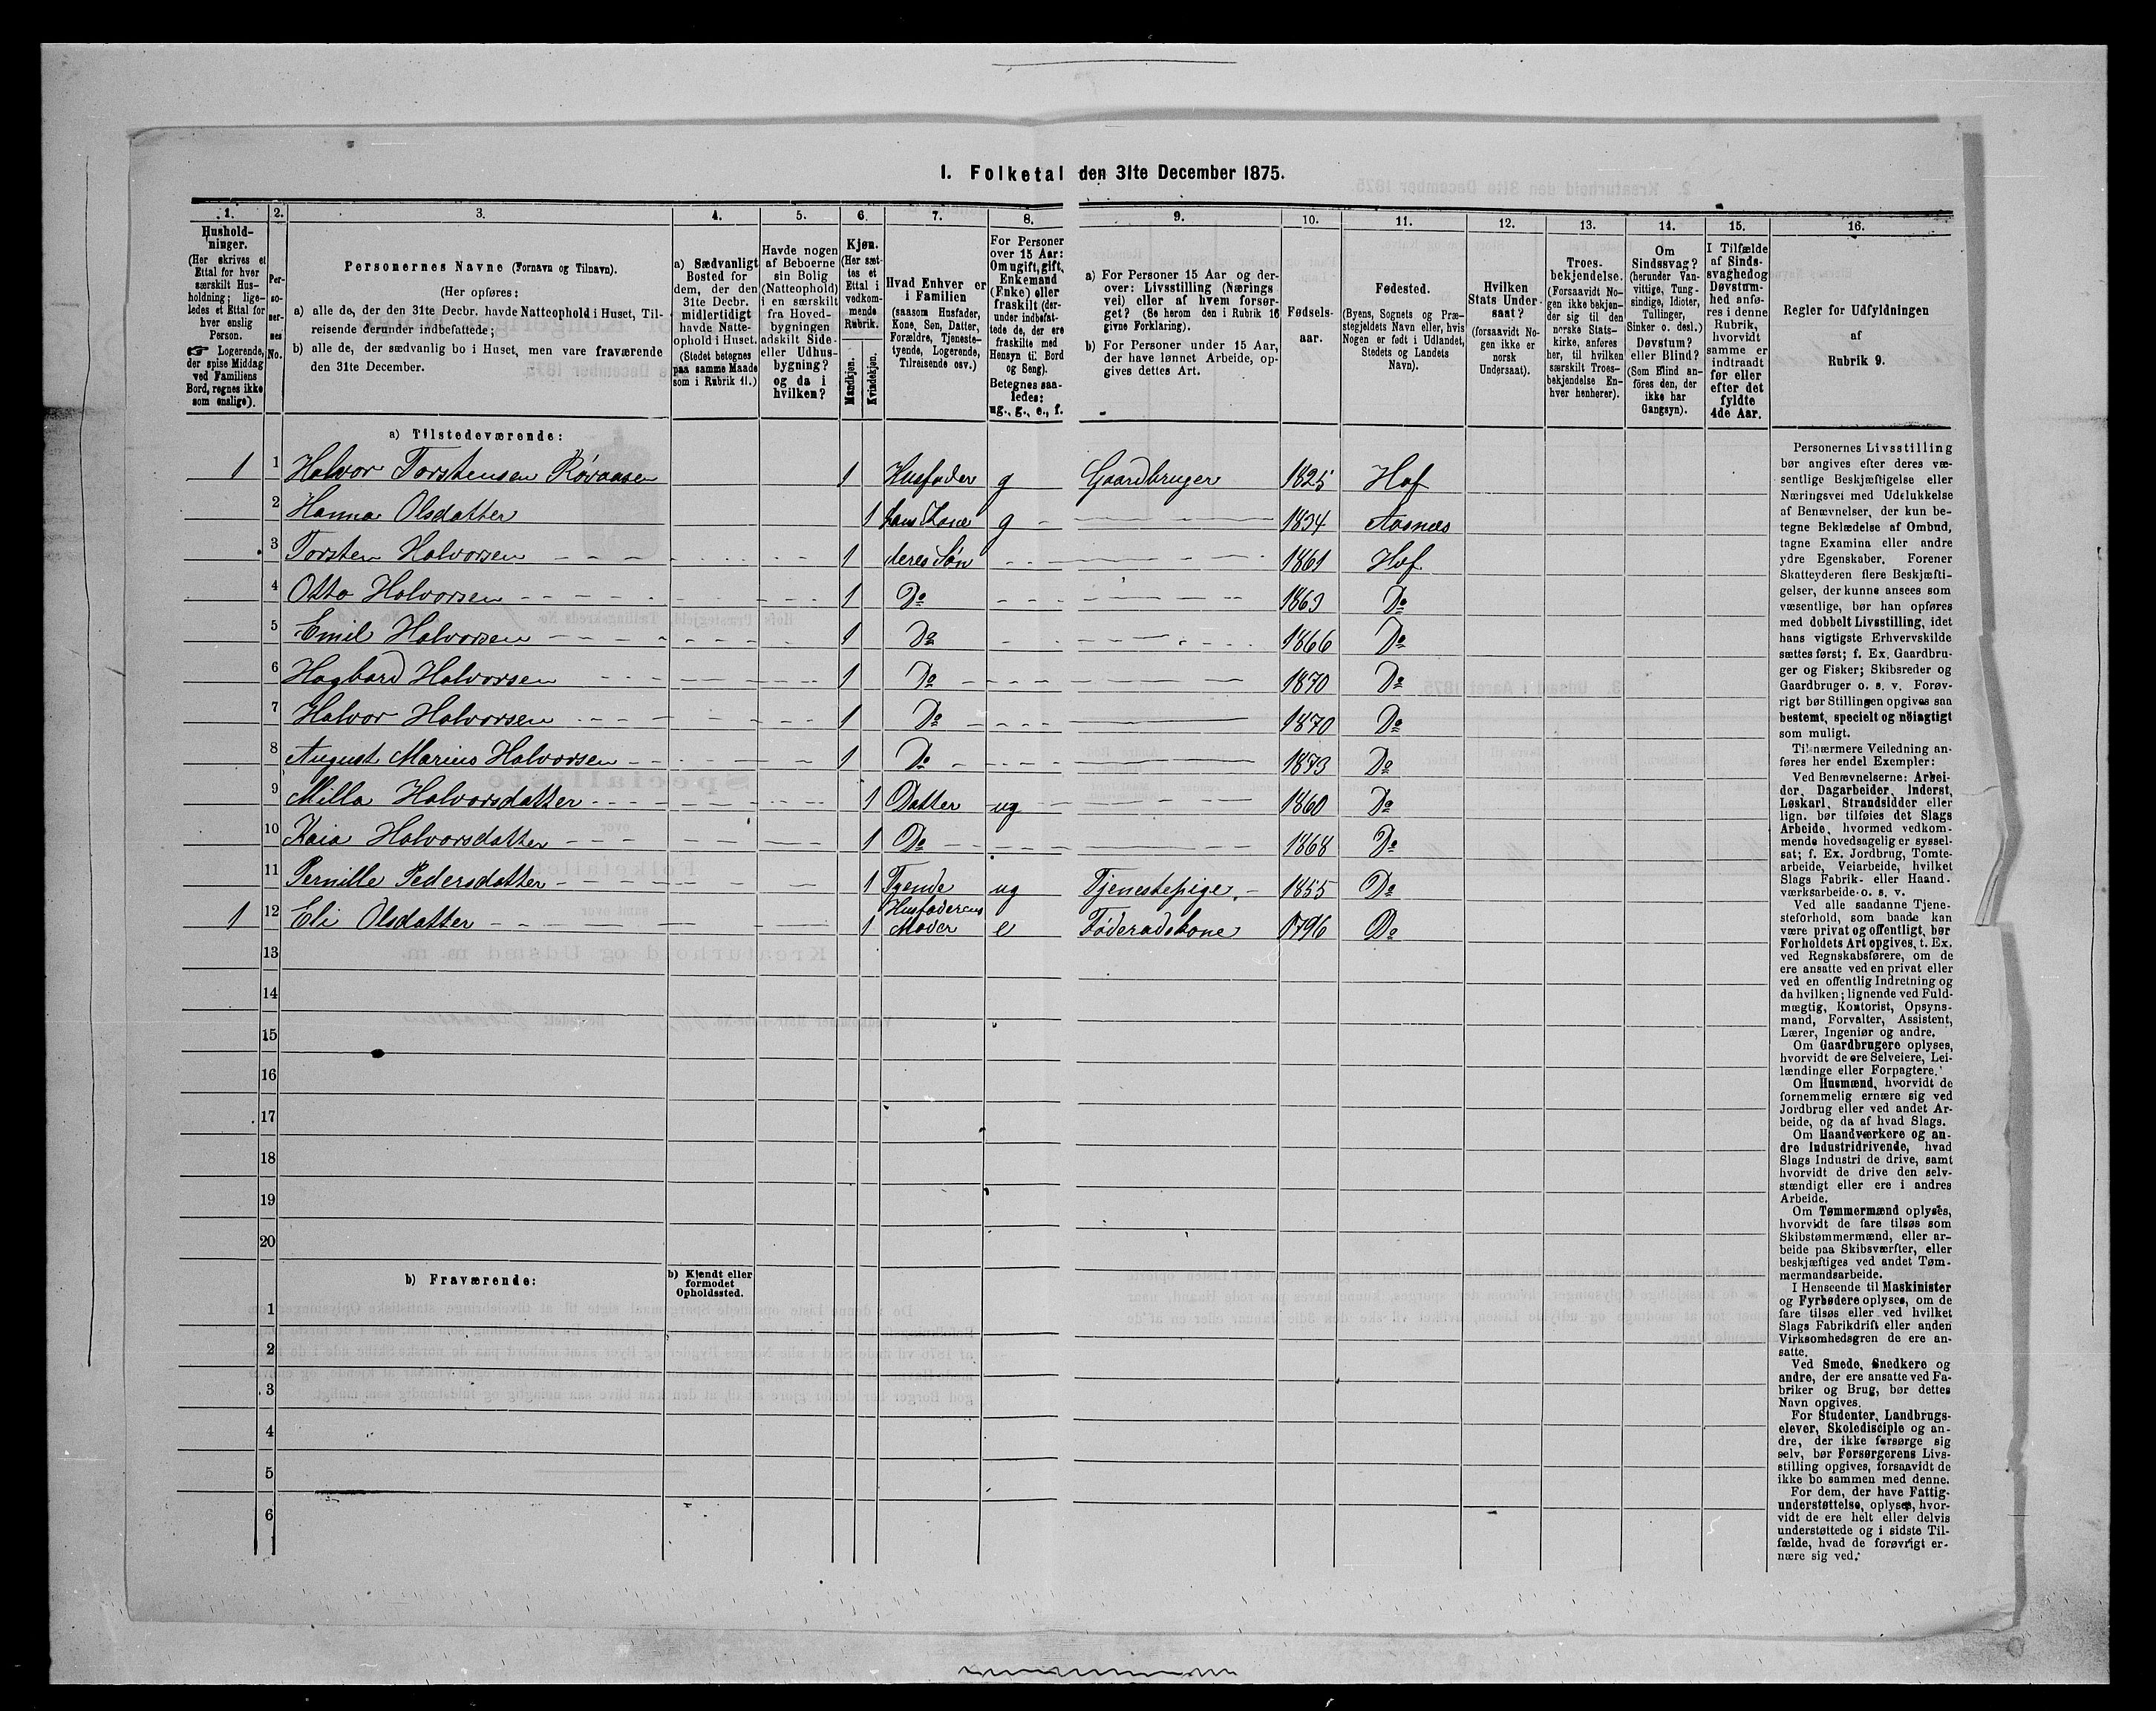 I. Folketal den 31te December 1875.
1. 2. 3. 4. 5. 6. 7. 8. 9. 10. 11. 12. 13. 14. 15. 16.
Hushold-
ninger.
(Her skrives et
Ettal for hver
særskilt Hus-
holdning; lige-
ledes et Ettal for
hver enslig
Person.
☞ Logerende,
der spise Middag
ved Familiens
Bord, regnes ikke
som enslige).
Per-
so-
ner-
nes
No.
Personernes Navne (Fornavn og Tilnavn).
(Her opføres:
a) alle de, der den 31te Decbr. havde Natteophold i Huset, Til-
reisende derunder indbefattede;
b) alle de, der sædvanlig bo i Huset, men vare fraværende
den 31te December.
a) Sædvanligt
Bosted for
dem, der den
31te Decbr.
midlertidigt
havde Natte-
ophold i Huset.
(Stedet betegnes
paa samme Maade
som i Rubrik 11.)
Havde nogen
af Beboerne
sin Bolig
(Natteophold)
i en særskilt
fra Hoved-
bygningen
adskilt Side-
eller Udhus-
bygning?
og da i
hvilken?
Kjøn.
(Her sæt-
tes et
Ettal i
vedkom-
mende
Rubrik.
Mandkjøn.
Kvindekjøn.
Hvad Enhver er
i Familien
(saasom Husfader,
Kone, Søn, Datter,
Forældre, Tjeneste-
tyende, Logerende,
Tilreisende osv.)
For Personer
over 15 Aar:
Om ugift, gift,
Enkemand
(Enke) eller
fraskilt (der-
under indbefat-
tede de, der ere
fraskilte med
Hensyn til Bord
og Seng).
Betegnes saa-
ledes:
ug., g., e., f.
a) For Personer 15 Aar og der-
over: Livsstilling (Nærings
vei) eller af hvem forsør-
get? (Se herom den i Rubrik 16
givne Forklaring).
b) For Personer under 15 Aar,
der have lønnet Arbeide, op-
gives dettes Art.
Fødsels-
aar.
Fødested.
(Byens, Sognets og Præ-
stegjeldets Navn eller, hvis
Nogen er født i Udlandet,
Stedets og Landets
Navn).
Hvilken
Stats Under-
saat?
(forsaavidt No-
gen ikke er
norsk
Undersaat).
Troes-
bekjendelse.
(Forsaavidt No-
gen ikke bekjen-
der sig til den
norske Stats-
kirke, anføres
her, til hvilken
særskilt Troes-
bekjendelse En-
hver henhører).
Om
Sindssvag?
(herunder Van-
vittige, Tung-
sindige, Idioter,
Tullinger,
Sinker o. desl.)
Døvstum?
eller Blind?
(Som Blind an-
føres den, der
ikke har
Gangsyn).
I Tilfælde
af Sinds-
svaghed og
Døvstum-
hed anfø-
res i denne
Rubrik,
hvorvidt
samme er
indtraadt
før eller
efter det
fyldte
4de Aar.
Regler for Udfyldningen
af
Rubrik 9.
a) Tilstedeværende:
1 1 Halvor Torstensen Røraasen 1 Husfader g Gaardbruger 1825 Hof
2 Hanna Olsdatter 1 hans Kone g 1834 Aasnæs
3 Torsten Halvorsen 1 deres Søn 1861 Hof
4 Otto Halvorsen 1 Do 1863 Do
5 Emil Halvorsen 1 Do 1866 Do
6 Hagbard Halvorsen 1 Do 1870 Do
7 Halvor Halvorsen 1 Do 1870 Do
8 August Marius Halvorsen 1 Do 1873 Do
9 Milla Halvorsdatter 1 Datter ug 1860 Do
10 Kaia Halvorsdatter 1 Do 1868 Do
11 Pernille Pedersdatter 1 Tyende ug Tjenestepige 1855 Do
1 12 Eli Olsdatter 1 Husfaderens Moder e Føderadskone 1796 Do
13
14
15
16
17
18
19
20
b) Fraværende:
b) Kjendt eller
formodet
Opholdssted.
1
2
3
4
5
6
Personernes Livsstilling
bør angives efter deres væ-
sentlige Beskjæftigelse eller
Næringsvei med Udelukkelse
af Benævnelser, der kun be-
tegne Beklædelse af Ombud,
tagne Examina eller andre
ydre Egenskaber. Forener
Skatteyderen flere Beskjæfti-
gelser, der kunne ansees som
væsentlige, bør han opføres
med dobbelt Livsstilling, idet
hans vigtigste Erhvervskilde
sættes først; f. Ex. Gaardbru-
ger og Fisker; Skibsreder og
Gaardbruger o. s. v. Forøv-
rigt bør Stillingen opgives saa
bestemt, specielt og nøiagtigt
som muligt.
Til nærmere Veiledning an-
føres her endel Exempler:
Ved Benævnelserne: Arbei-
der, Dagarbeider, Inderst,
Løskarl, Strandsidder eller
lign. bør tilføies det Slags
Arbeide, hvormed vedkom-
mende hovedsagelig er syssel-
sat; f. Ex. Jordbrug, Tomte-
arbeide, Veiarbeide, hvilket
Slags Fabrik- eller Haand-
værksarbeide o. s. v.
Ved alle saadanne Tjene-
steforhold, som baade kan
være privat og offentligt, bør
Forholdets Art opgives, t. Ex.
ved Regnskabsførere, om de
ere ansatte ved en privat eller
ved en offentlig Indretning og
da hvilken; lignende ved Fuld-
mægtig, Kontorist, Opsyns-
mand, Forvalter, Assistent,
Lærer, Ingeniør og andre.
Om Gaardbrugere oplyses,
hvorvidt de ere Selveiere, Lei-
lændinge eller Forpagtere.
Om Husmænd, hvorvidt de
fornemmelig ernære sig ved
Jordbrug eller ved andet Ar-
beide, og da af hvad Slags.
Om Haandværkere og an-
dre Industridrivende, hvad
Slags Industri de drive, samt
hvorvidt de drive den selv-
stændigt eller ere i andres
Arbeide.
Om Tømmermænd oplyses,
hvorvidt de fare tilsøs som
Skibstømmermænd, eller ar-
beide paa Skibsværfter, eller
beskjæftiges ved andet Tøm-
mermandsarbeide.
I Henseende til Maskinister
og Fyrbødere oplyses, om de
fare tilsøs eller ved hvilket
Slags Fabrikdrift eller anden
Virksomhedsgren de ere an-
satte.
Ved Smede, Snedkere og
andre, der ere ansatte ved Fa-
briker og Brug, bør dettes
Navn opgives.
For Studenter, Landbrugs-
elever, Skoledisciple og an-
dre, der ikke forsørge sig
selv, bør Forsørgerens Livs-
stilling opgives, forsaavidt de
ikke bo sammen med denne.
For dem, der have Fattig-
understøttelse, oplyses, hvor-
vidt de ere helt eller delvis
understøttede og i sidste Til-
fælde, hvad de forøvrigt er-
nære sig ved.